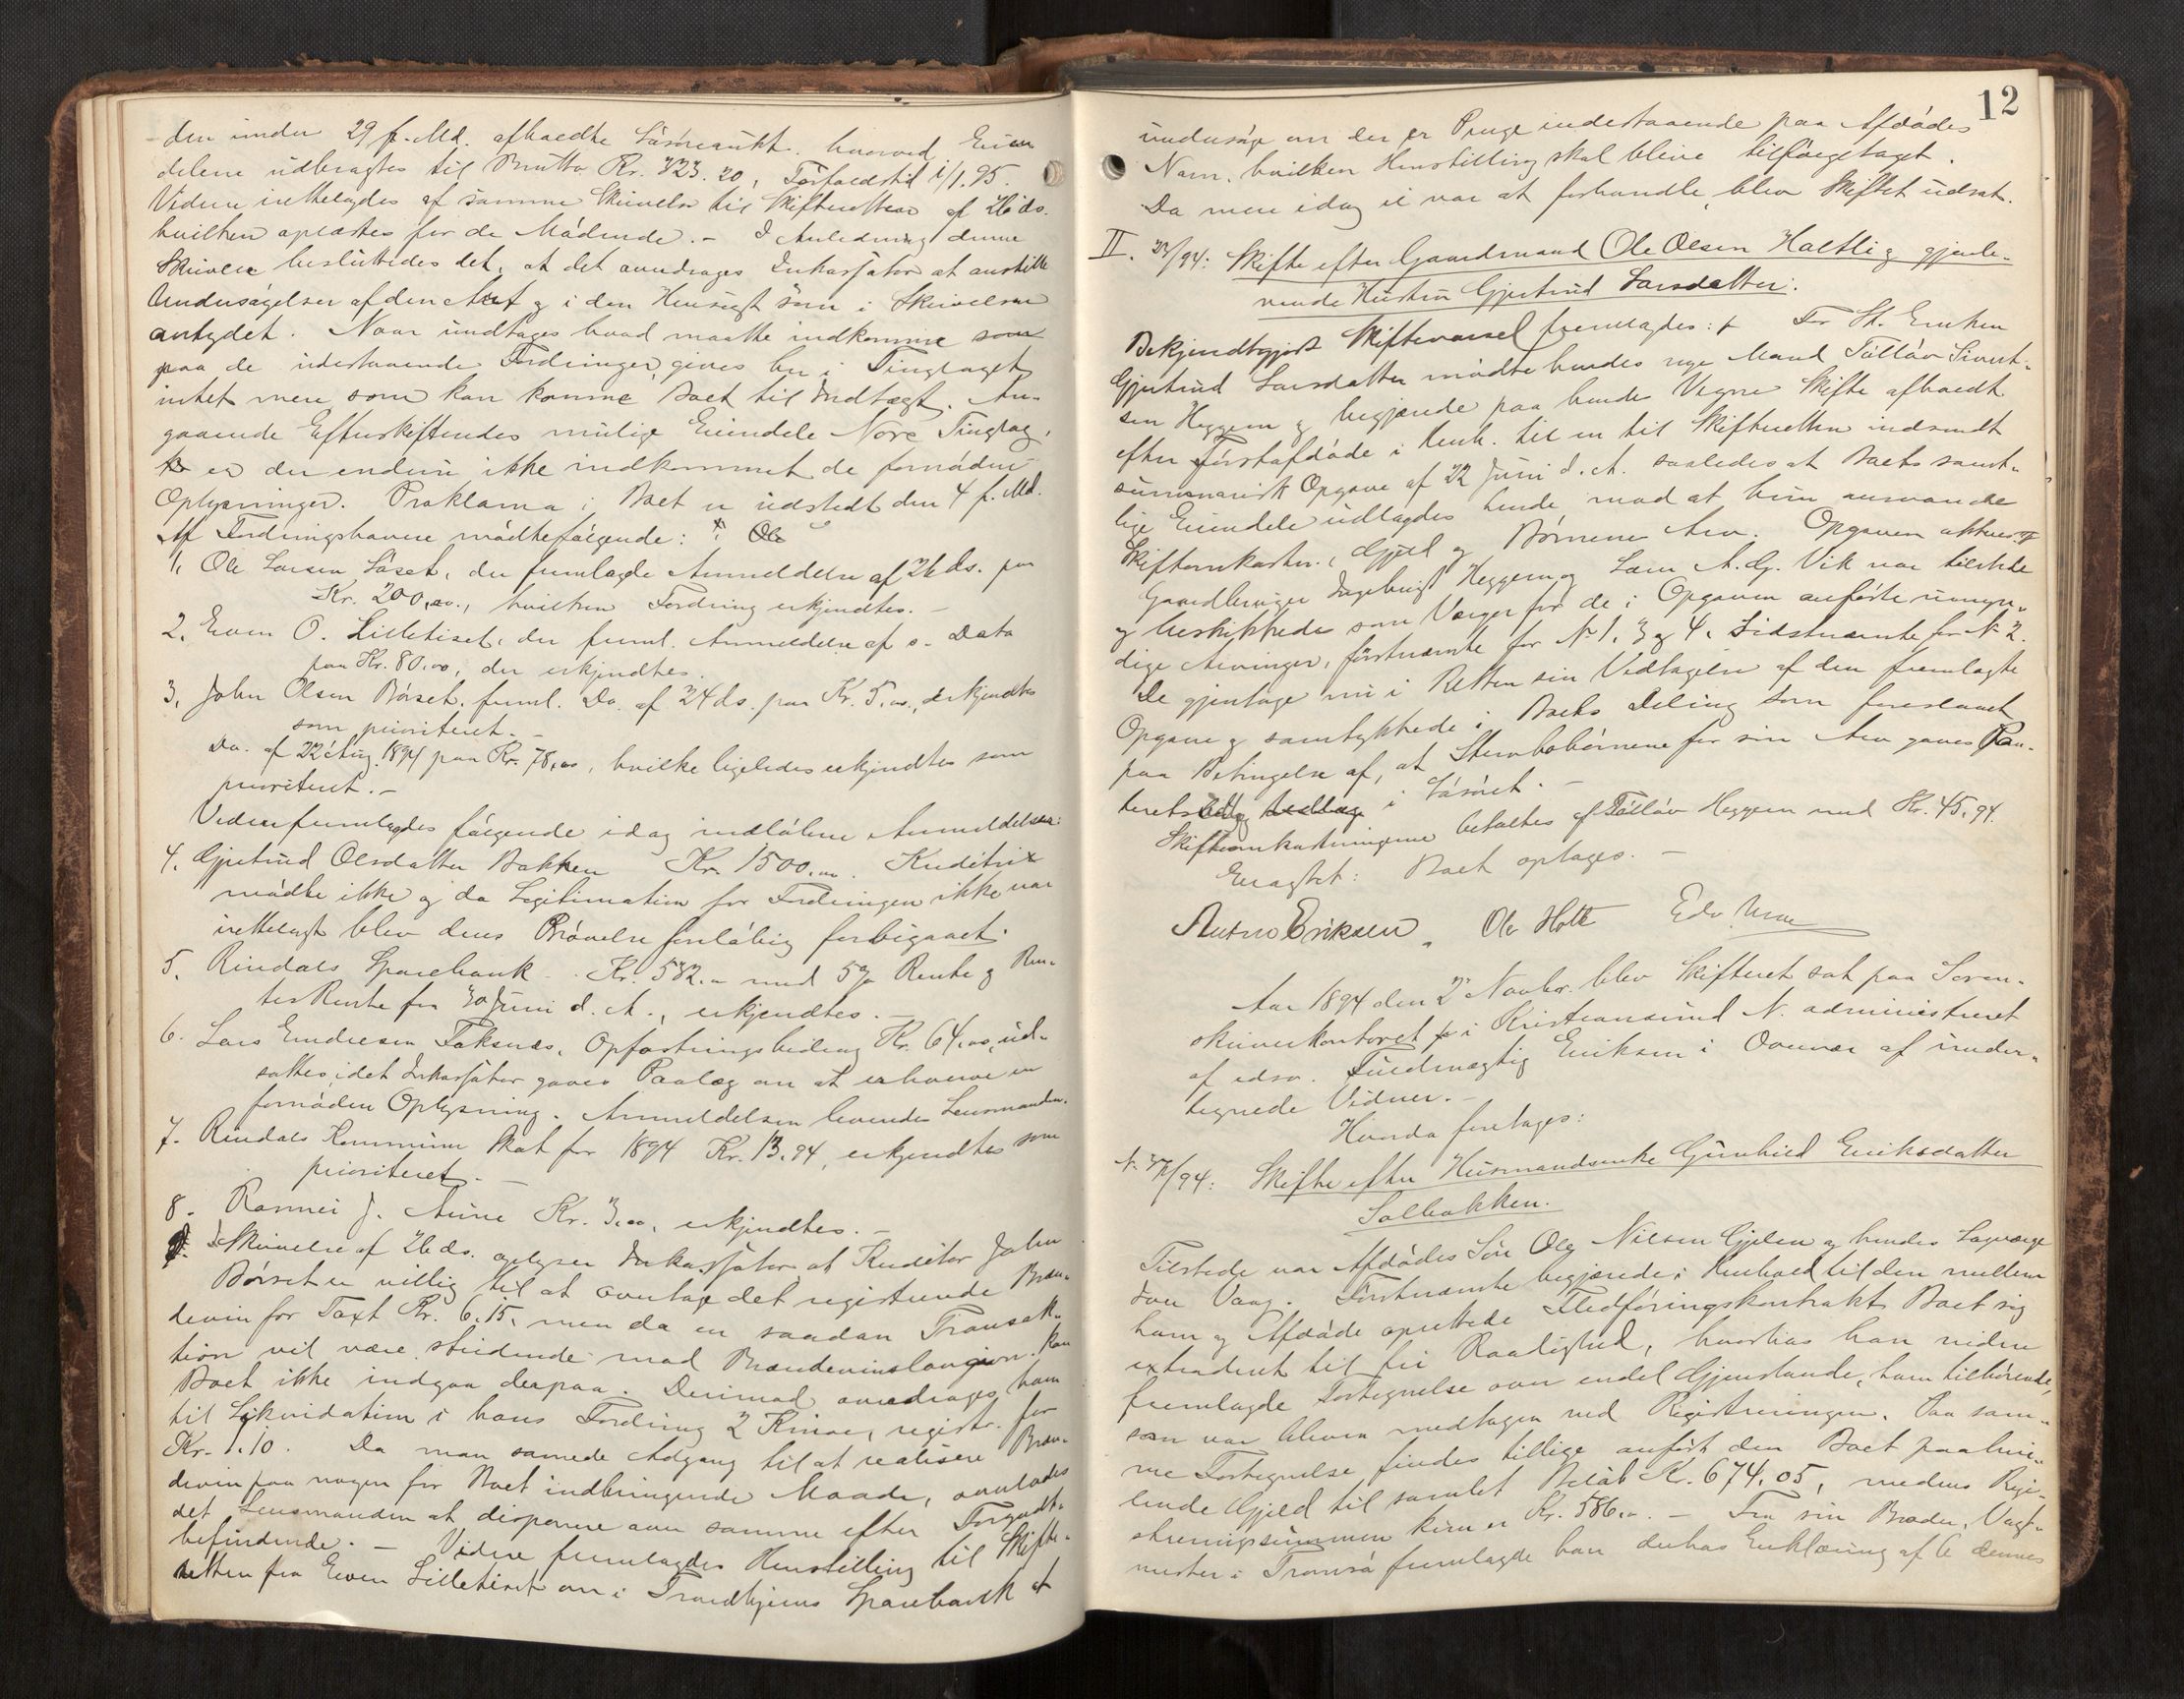 den under 29 f. Md. afholdte Løsøreaukt. hvorved Eien
delene udbragtes til Brutto Kr. 323.20, Forfaldstid 1/1.95.
Videre irettelagdes af samme Skrivelse til Skifteretten af 26 ds.
hvilken oplæstes for de Mødende. – I Anledning denne
Skrivelse besluttedes det, at det overdrages Inkassator at anstille
Undersøgelser af den Art og i den Hensigt som i Skrivelsen
antydet. Naar undtages hvad maatte indkomme som
paa de udestaaende Fordringer, gives her i Tinglaget
intet mere som kan komme Boet til Indtægt. An-
gaaende Efterskiftendes mulige Eiendele Nore Tinglag,
er der endnu ikke indkommet de fornødne
Oplysninger. Proklama i Boet er udstedt den 4 f. Md.
Af Fordringshavere mødte følgende: Ole
1, Ole Larsen Løset, der fremlagde Anmeldelse af 26 ds. paa
Kr. 200,00., hvilken Fordring erkjendtes. –
2. Even O. Lilletiset, der freml. Anmeldelse af s. Dato
paa Kr. 80.00, der erkjendtes.
3, John Olsen Børset, freml. Do. af 24 ds. paa Kr. 5.00, erkjendtes
som prioriteret. –
Do. af 22 Aug. 1894 paa Kr. 78,00, hvilke ligeledes erkjendtes som
prioriteret. –
Videre fremlagdes følgende idag indløbne Anmeldelser:
4. Gjertrud Olsdatter Bakken Kr. 1500.00. Kreditrix
mødte ikke og da Legitimation for Fordringen ikke var
irettelagt blev dens Prøvelse foreløbig forbigaaet.
5. Rindals Sparebank – Kr. 582.– med 5% Rente og Ren-
tes Rente fra 30 Juni d. A., erkjendtes. –
6. Lars Endresen Foksnes, Opfostringsbidrag Kr. 64,00, ud-
sattes, idet Inkassator gaves Paalæg om at erhverve en
fornøden Oplysning. Anmeldelsen levendes Lensmanden.
7. Rindals Kommune Skat for 1894 Kr. 13.94, erkjendtes som
prioriteret. –
8. Rannei J. Aune Kr. 3,00, erkjendtes. –
I Skrivelse af 26 ds. oplyser Inkassator at Kreditor John
Børset er villig til at overtage det registrerede Bræn-
devin for Taxt Kr. 6.15, men da en saadan Transak-
tion vil være stridende mod Brændevinsloven kan
Boet ikke indgaa derpaa. Derimod overdrages ham
til Likvidation i hans Fordring 2 Kruse, registr. for
Kr. 1.10. Da man savnede Adgang til at realisere Bræn-
devin paa nogen for Boet indbringende Maade, overlodes
det Lensmanden at disponere over samme efter Forgodt-
befindende. – Videre fremlagdes Henstilling til Skifte-
retten fra Even Lilletiset om i Trondhjems Sparebank at
12
undersøge om der er Penge indestaaende paa Afdødes
Navn, hvilken Henstilling skal blive tilfølgetaget.
Da mere idag ei var at forhandle, blev Skiftet udsat.
II. /94: Skifte efter Gaardmand Ole Olsen Holtli og gjenle-
vende Hustru Gjertrud Larsdatter.
Bekjendtgjort Skiftevarsel fremlagdes: For St. Enken
Gjertrud Larsdatter mødte hendes nye Mand Tølløv Sivert-
sen Heggem og begjærede paa hendes Vegne Skifte afholdt
efter førstafdøde i Henh. til en til Skifteretten indsendt
summarisk Opgave af 22 Juni d. A. saaledes at Boets samt-
lige Eiendele udlagdes hende mod at hun ansvarede
Skifteomkostn., Gjæld og Børnenes Arv. Opgaven
Gaardbruger Ingebrigt Heggem og Lars A. G. Vik var tilstede
og beskikkedes som Værger for de i Opgaven anførte umyn-
dige Arvinger, førstnævnte for No 1, 3 og 4, Sidstnævnte for No 2.
De gjentoge nu i Retten sin Vedtagelse af den fremlagte
Opgave og samtykkede i Boets Deling som foreslaaet
paa Betingelse af, at Stervbobørnene for sin Arv gaves Pan-
teret i Løsøret. –
Skifteomkostningerne betaltes af Tølløv Heggem med Kr. 45,94.
Eragtet: Boet optages. –
Anton Eriksen, Ole Holte Edv.
Aar 1894 den 2 Novbr. blev Skifteret sat paa Soren-
skriverkontoret i Kristiansund N. administreret
af edsv. Fuldmægtig Eriksen i Overvær af under-
tegnede Vidner. –
Hvorda foretages:
N. /94: Skifte efter Husmandsenke Gunhild Eriksdatter
Solbakken.
Tilstede var Afdødes Søn Ole Nilsen Gjelen og hendes Lagværge
Iver Vaag. Førstnævnte begjærede i Henhold til den mellem
ham og Afdøde oprettede Fledføringskontrakt Boet sig
extraderet til fri Raadighed, hvorhos han videre
fremlagde Fortegnelse over endel Gjenstande, ham tilhørende,
som var bleven medtagen ved Registreringen. Paa sam-
me Fortegnelse findes tillige anført den Boet paahvi-
lende Gjæld til samlet Beløb Kr. 674.05, medens Regi-
streringssummen kun er Kr. 586.–. – Fra sin Broder, Vagt-
mester i Tromsø fremlagde han derhos Erklæring af 6 dennes